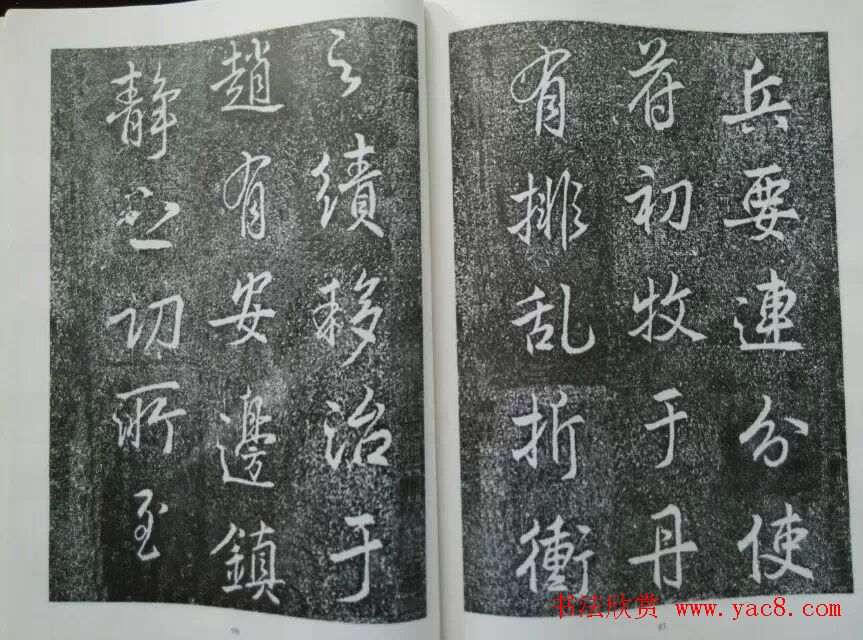 兵要連分使
苻初牧于丹
有排乱折衝
之績移治于
趙有安邊鎮
靜之功所至
97
98
书法欣赏 www.yac8.com